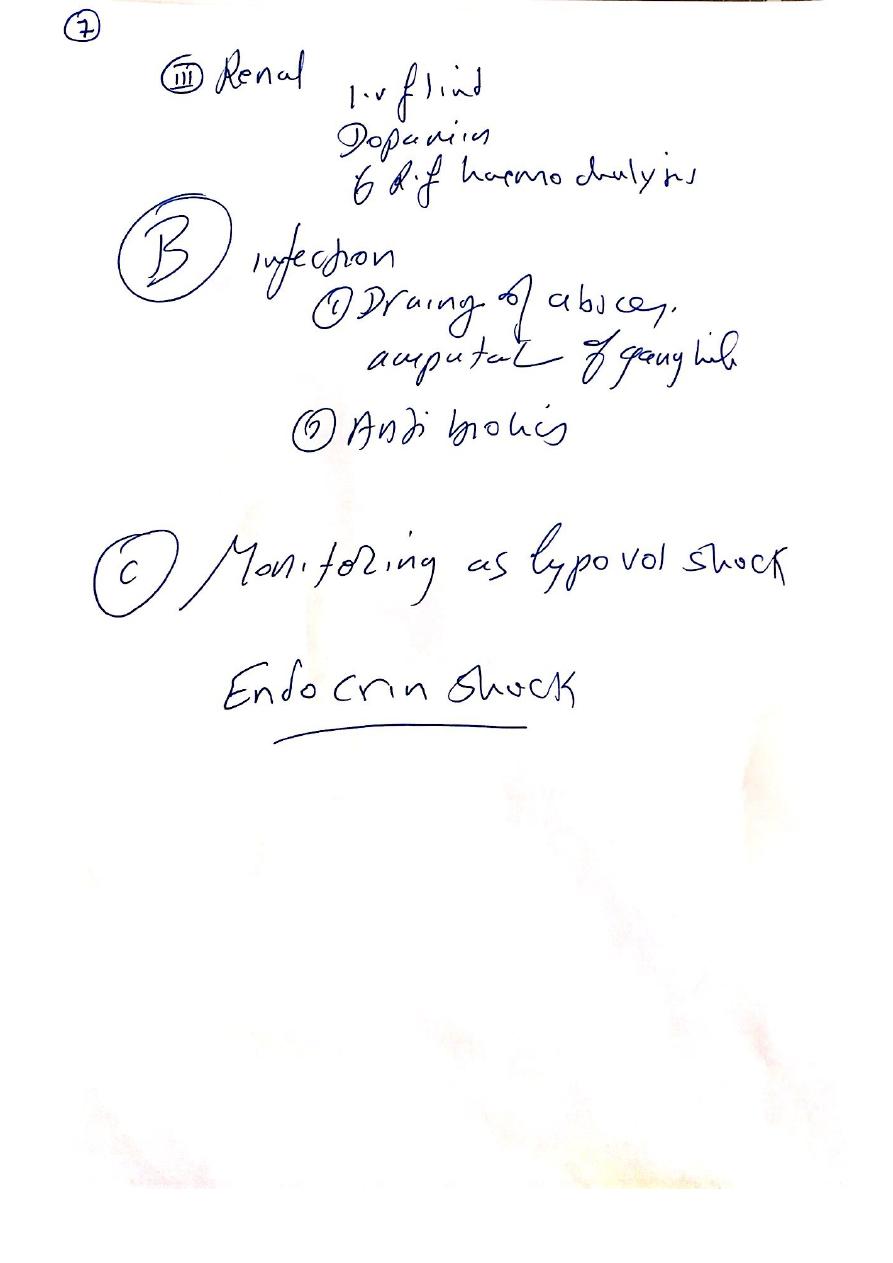 7
III Renal
I.v fluid
Dopamin
R.f haemo dialysis
B infection
1 Draing of absces.
amputat of
2 Anti biotics
C Monitoring as hypovol shock
Endocrin shock